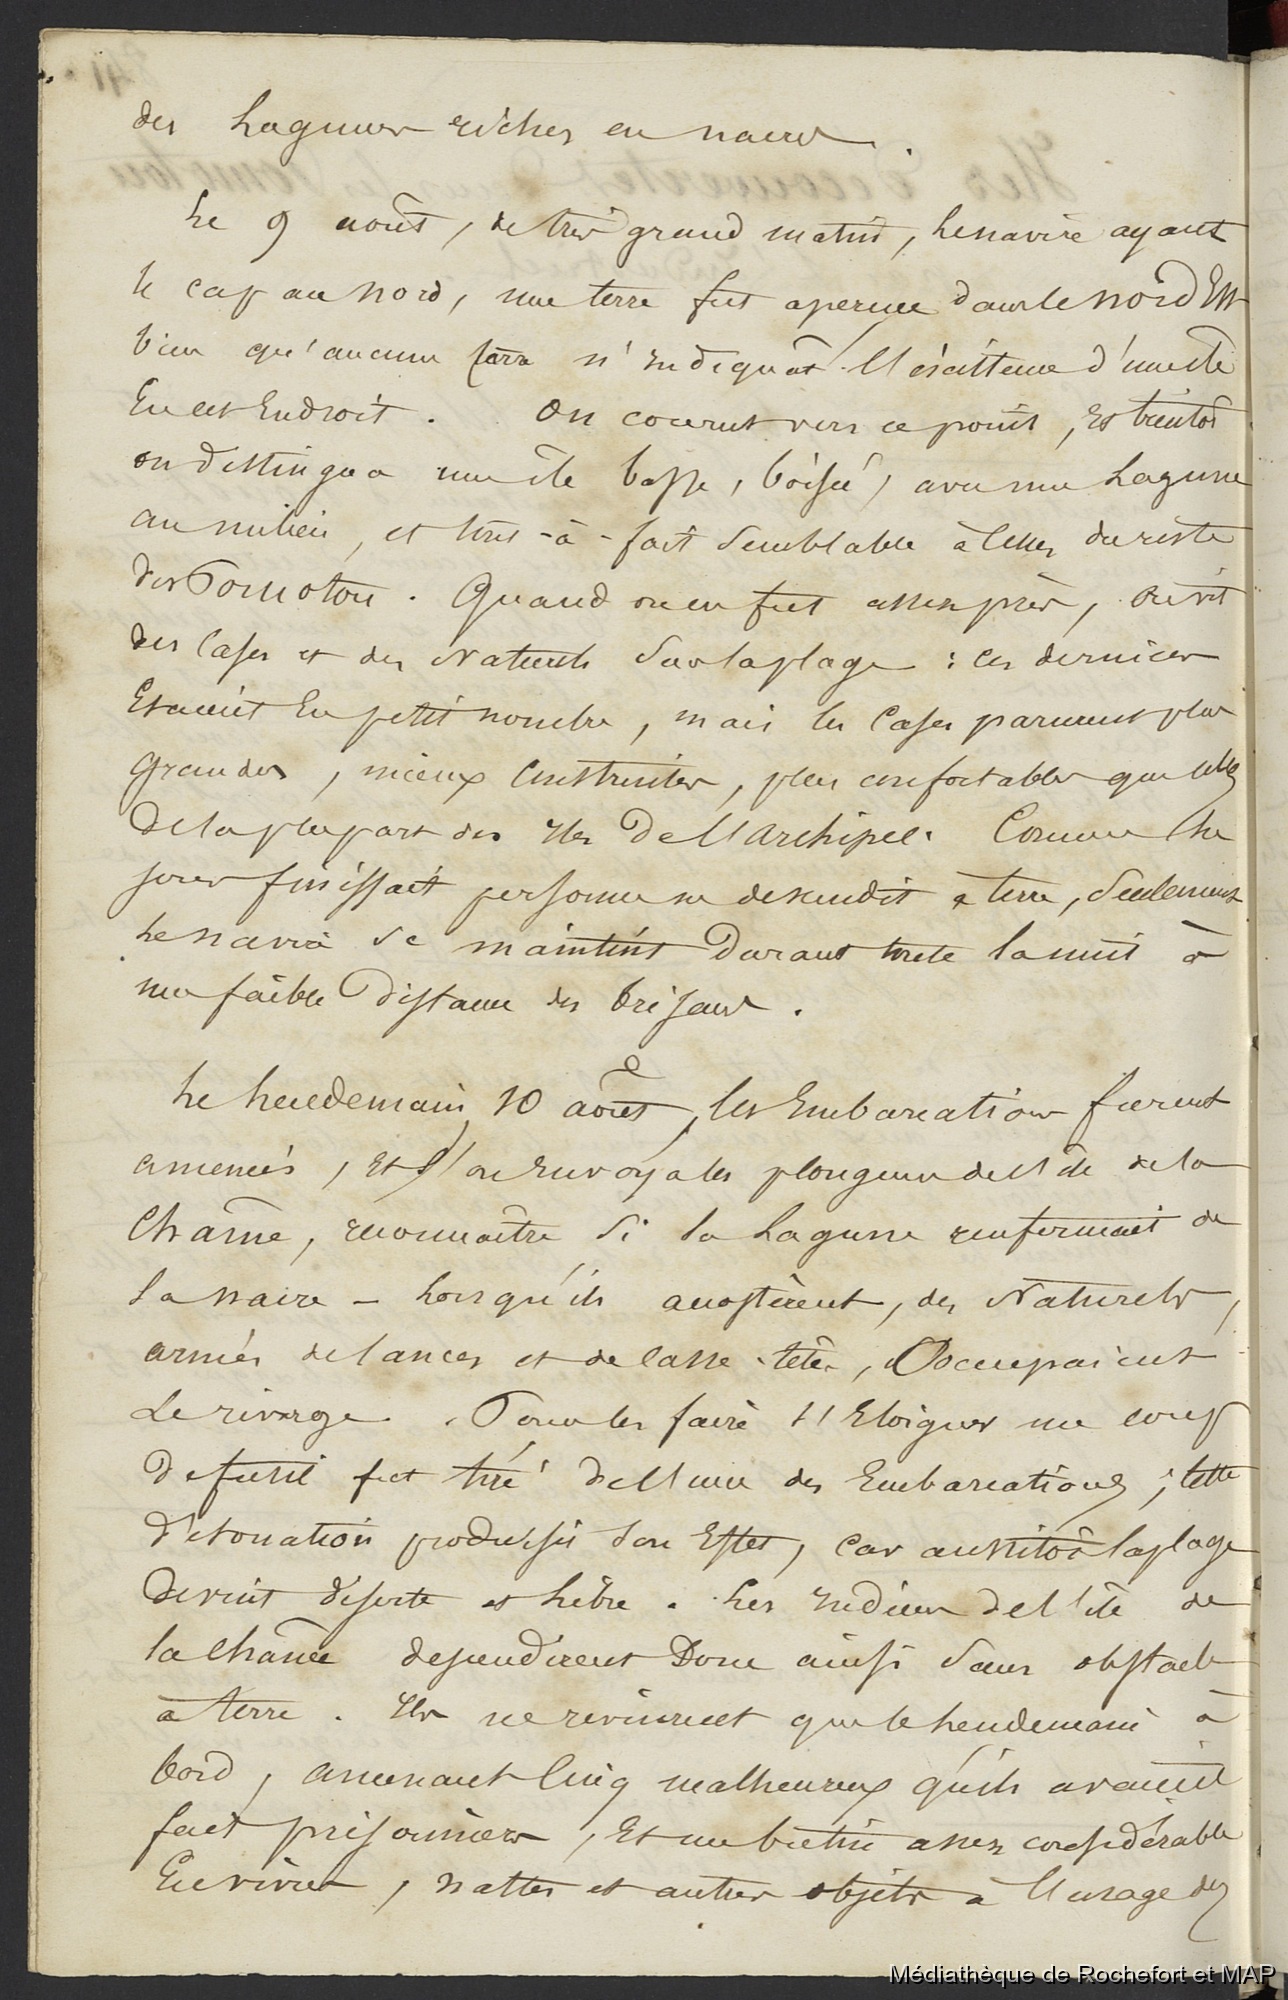 des Lagunes riches en nacre.
Le 9 août, de très grand matin, le navire ayant
le cap au nord, une terre fut aperçue dans le nord Est
bien qu'aucune carte n'indiquât l'existence d'une île
En cet Endroit. On courut vers ce point, Et bientôt
on distingua une île basse, boisée, avec une Lagune
au milieu, et tout-à-fait Semblable à celles du reste
des Pomotou. Quand on en fut assez près, on vit
des Cases et des Naturels Sur la plage : ces derniers
Etaient En petit nombre, mais les Cases parurent plus
grandes, mieux Construites, plus confortables que celles
De la plupart des Iles De l'Archipel. Comme Le
jour finissait personne ne descendit à terre, Seulement
Le navire se maintint Durant toute la nuit à
une faible Distance des brisans.
Le Lendemain 10 août, les Embarcations furent
amenées, Et l'on Envoya les plongeurs de l'île de la
Chaîne, reconnaître Si la Lagune renfermait de
la nacre – Lorsqu'ils accostèrent, des Naturels,
armés de lances et de casse-tête, Occupaient
Le rivage. Pour les faire s'Eloigner un coup
De fusil fut tiré de l'une des Embarcations ; Cette
détonation produisit Son Effet, Car aussitôt la plage
Devint déserte et Libre. Les Indiens de l'île de
la Chaîne descendirent Donc ainsi Sans obstacle
à terre. Ils ne revinrent que le Lendemain à
bord, amenant Cinq malheureux qu'ils avaient
fait prisonniers, Et un butin assez considérable
En vivres, nattes et autres objets à l'usage des
Médiathèque de Rochefort et MAP